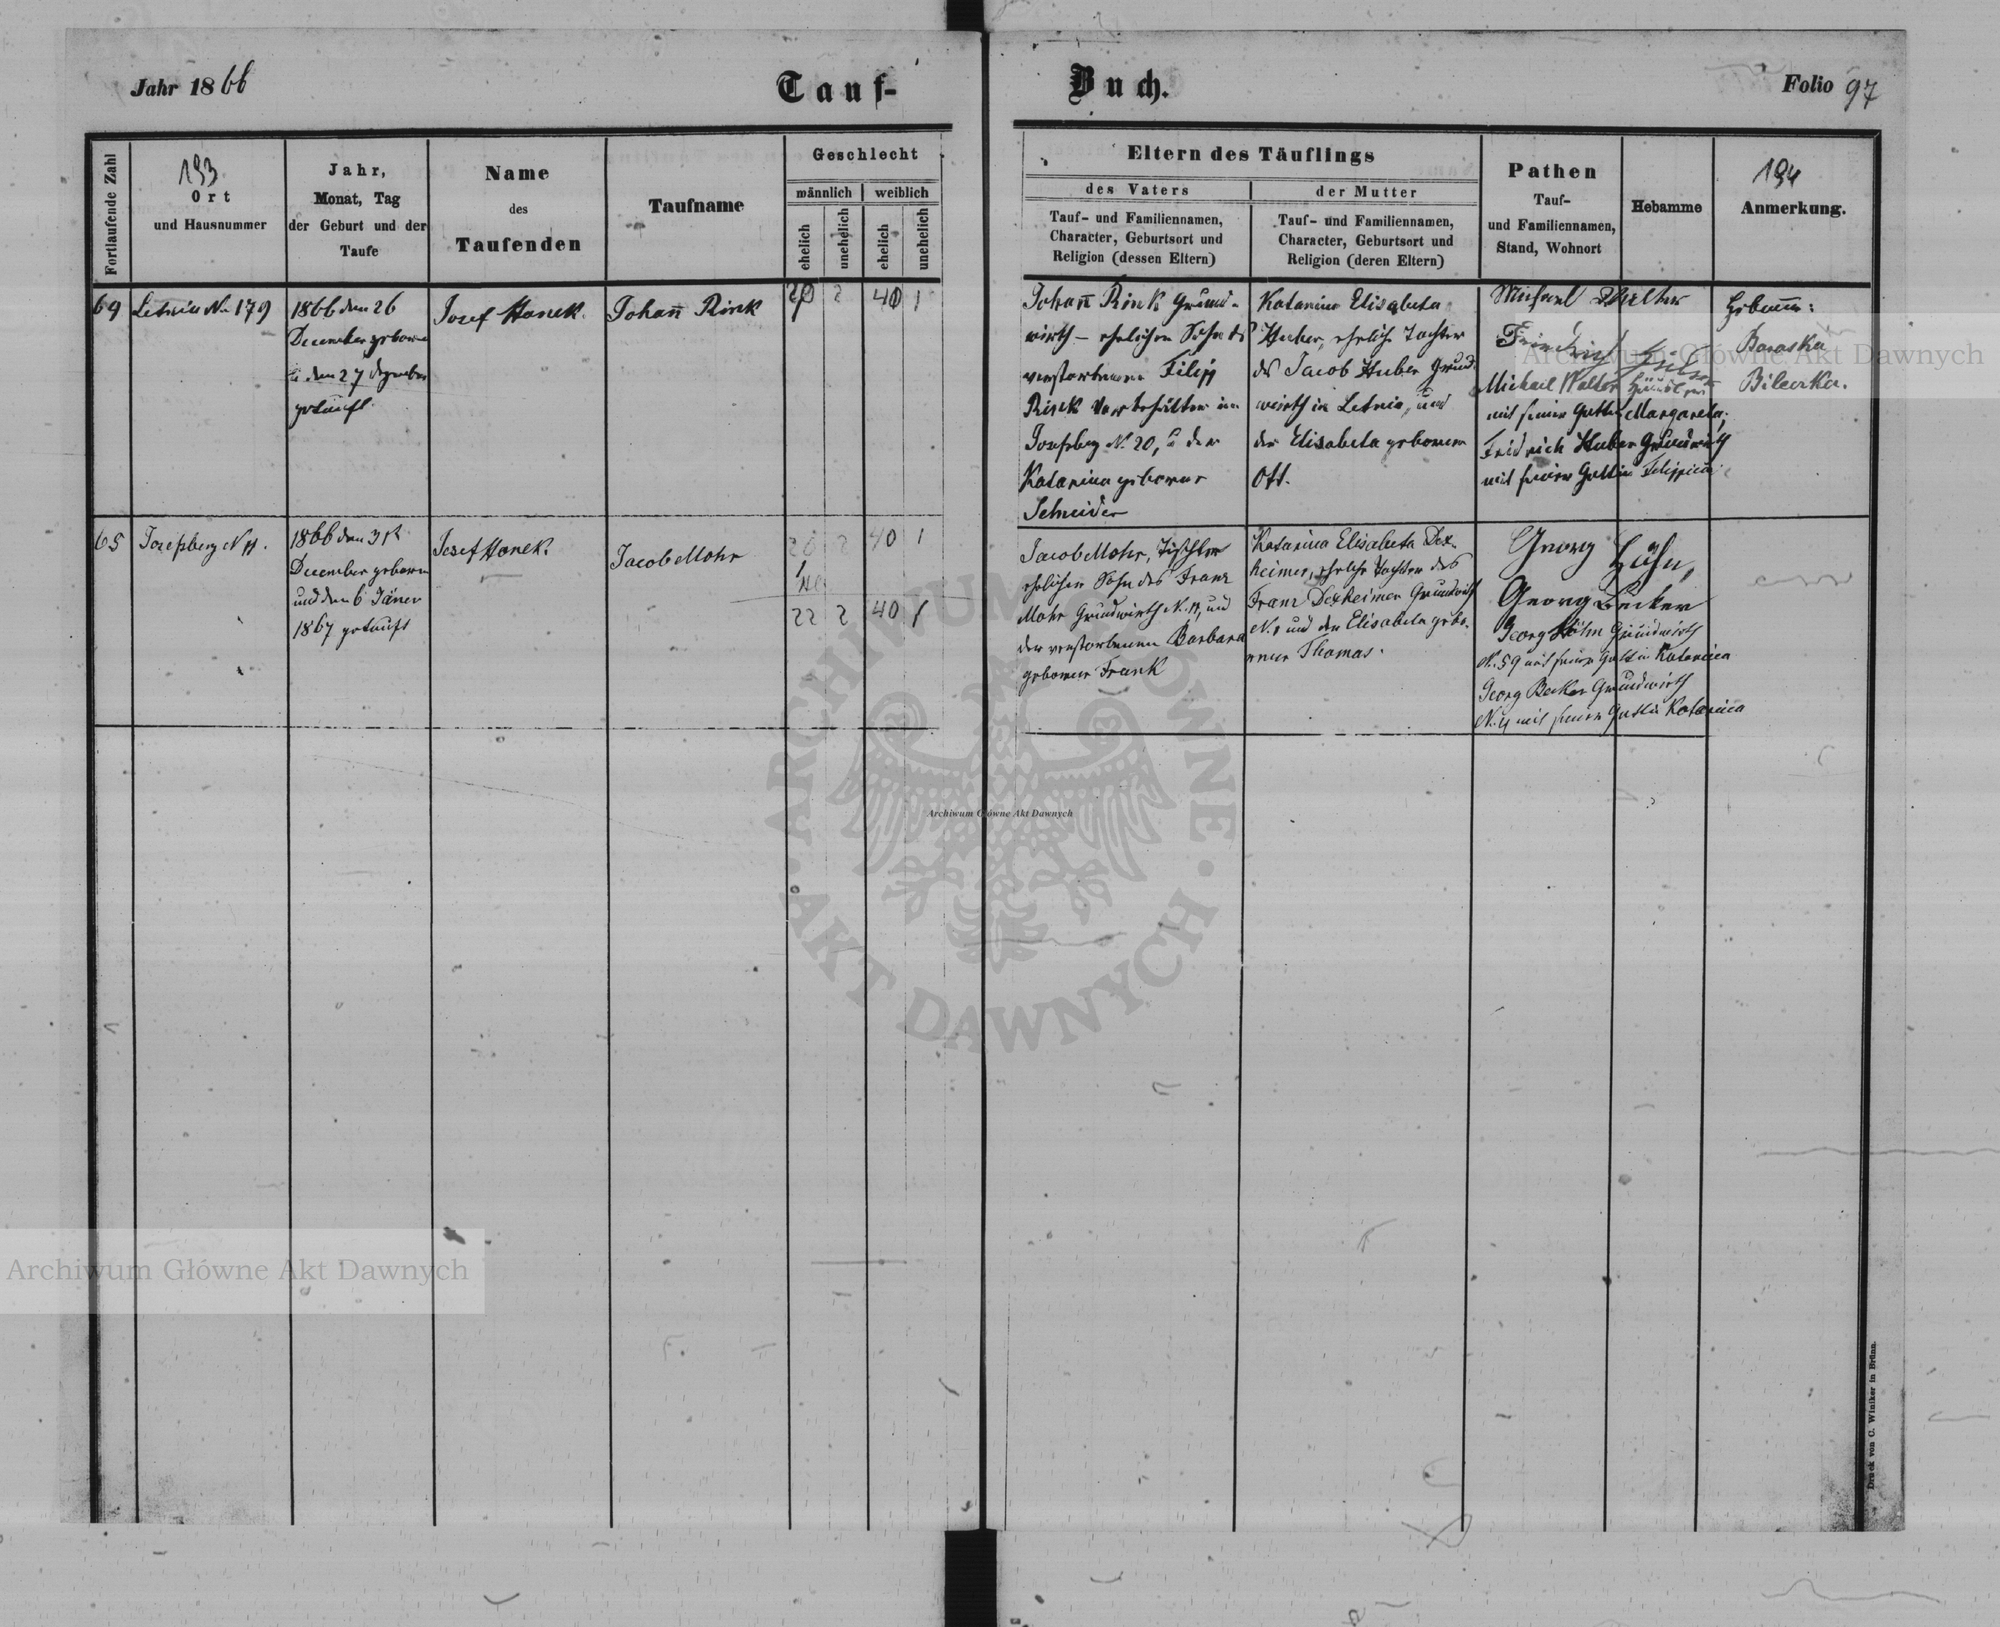 Jahr 1866
Tauf-
Buch.
Folio 97
Fortlaufende Zahl
193
Ort
und Hausnummer
Jahr,
Monat, Tag
der Geburt und der
Taufe
Name
des
Taufenden
Taufname
Geschlecht
männlich
weiblich
ehelich
unehelich
ehelich
unehelich
Eltern des Täuflings
des Vaters
Tauf- und Familiennamen,
Character, Geburtsort und
Religion (dessen Eltern)
der Mutter
Tauf- und Familiennamen,
Character, Geburtsort und
Religion (deren Eltern)
Pathen
Tauf-
und Familiennamen,
Stand, Wohnort
Hebamme
194
Anmerkung.
64
Letnia No 179
1866 den 26
December geboren
u den 27 Dezember
getauft.
Josef Hanek.
Johan̄ Rink
2
40
1
Johan̄ Rink Grund-
wirth - ehelicher Sohn des
verstorbenen Filipp
Rink Vorbehälter in
Josefsberg No 20, u der
Katarina geborene
Schneider
Katarina Elisabeta
Huber, eheliche Tochter
des Jacob Huber Grund-
wirth in Letnia, und
der Elisabeta geborenen
Ott.
Michael Walter
Friedrich
Michael Walter
mit seiner Gattin Margareta,
Fridrich Huber Grundwirth
mit seiner Gattin Filippina
Hebamme:
Baraska
Bilecka.
65
Josefsberg N 11.
1866 den 31t
December geboren
und den 6 Jäner
1867 getauft
Josef Hanek.
Jacob Mohr
20
2
40
1
22
2
40
1
Jacob Mohr, Tischler
ehelicher Sohn des Franz
Mohr Grundwirth N. 11, und
der verstorbenen Barbara
geborene Frank
Katarina Elisabeta Dex-
heimer, eheliche Tochter des
Franz Dexheimer Grundwirth
N. 1 und der Elisabeta gebo-
rene Thomas.
Georg Höhn,
Georg Becker
Georg Höhn Grundwirth
N. 59 mit seiner Gattin Katarina
Georg Becker Grundwirth
N. 4 mit seiner Gattin Katarina
Archiwum Główne Akt Dawnych
ARCHIWUM GŁÓWNE
AKT DAWNYCH
Archiwum Główne Akt Dawnych
Archiwum Główne Akt Dawnych
Druck von C. Winiker in Brünn.